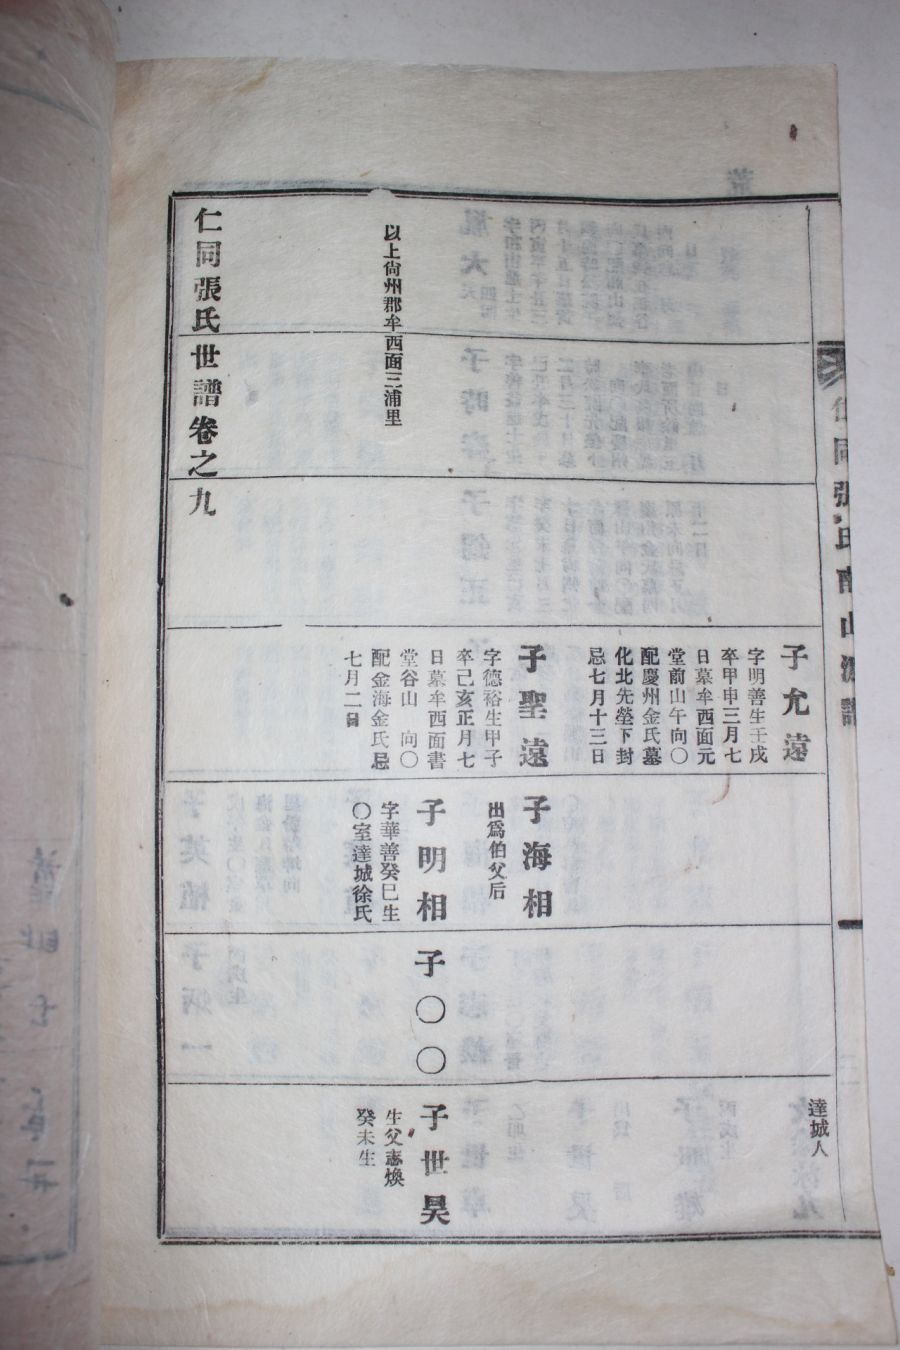 仁同張氏南山派譜
子允遠
字明善生壬戌
卒甲申三月七
日墓牟西面元
堂前山午向〇
配慶州金氏墓
化北先塋下封
忌七月十三日
子聖遠
字德裕生甲子
卒己亥正月七
日墓牟西面書
堂谷山 向〇
配金海金氏忌
七月二日
子海相
出爲伯父后
子明相
字華善癸巳生
〇室達城徐氏
子〇〇
達城人
子世昊
生父志煥
癸未生
以上尙州郡牟西面三浦里
仁同張氏世譜卷之九